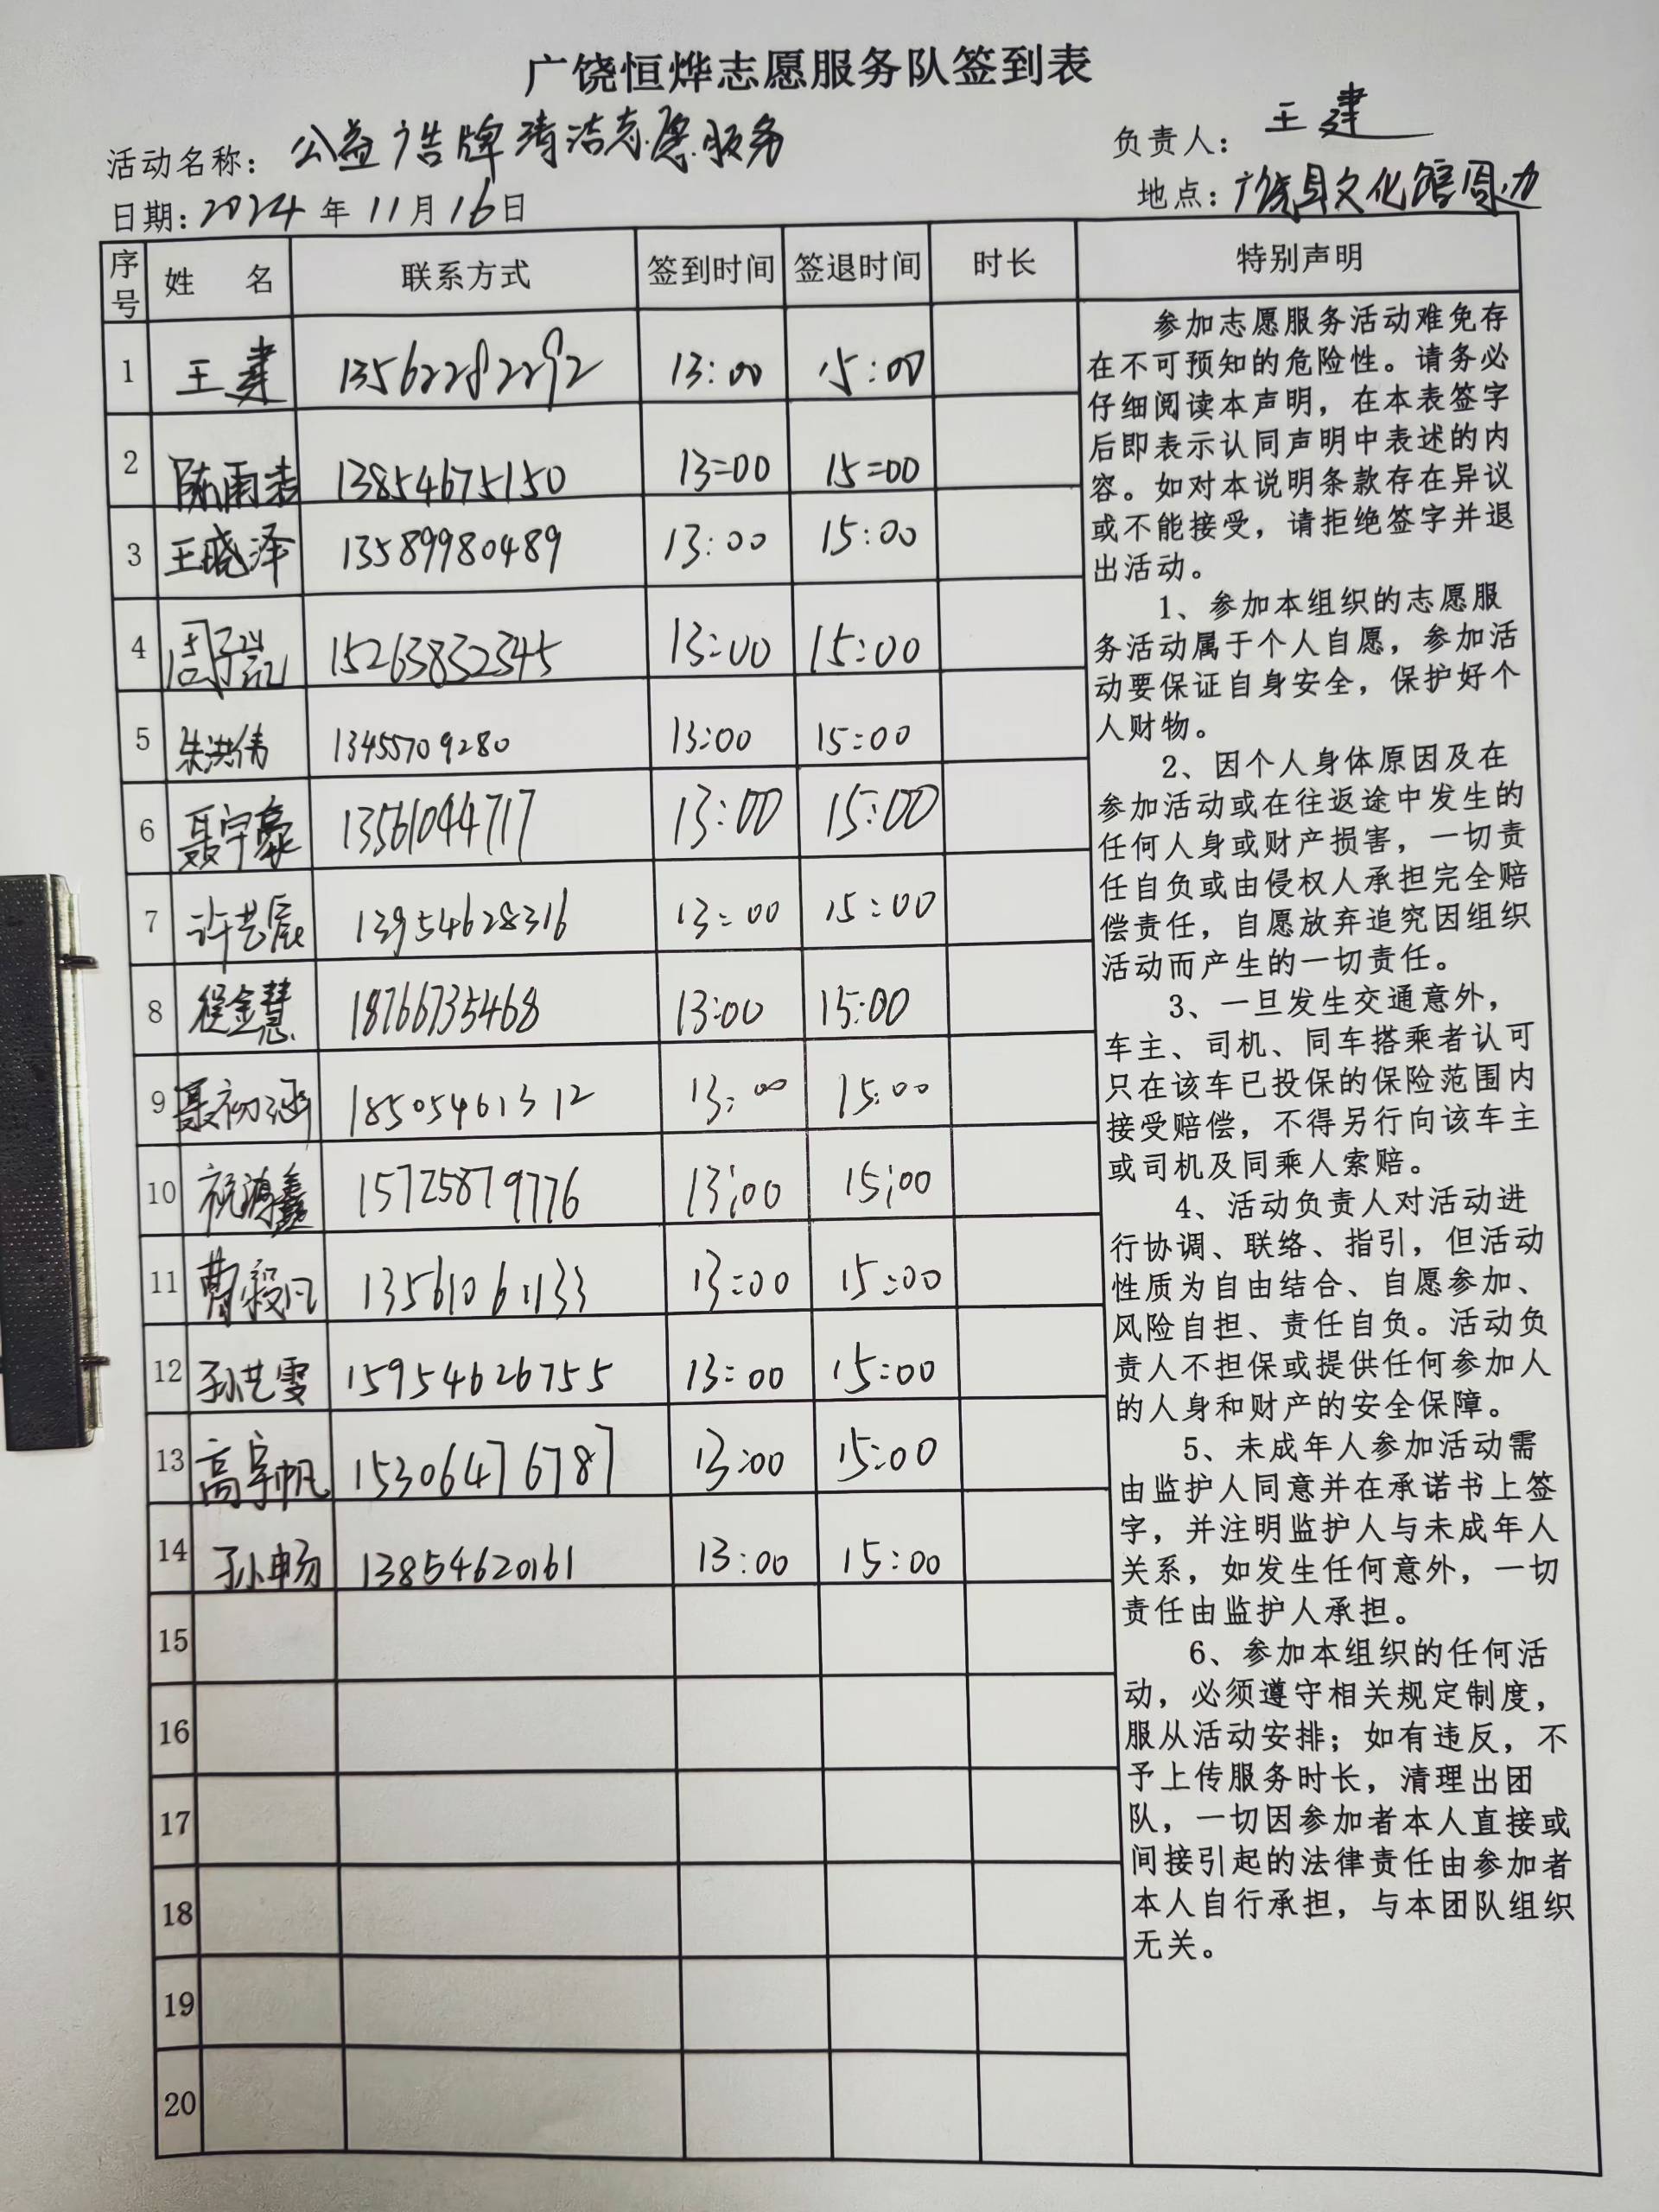 广饶恒烨志愿服务队签到表
活动名称：公益广告牌清洁志愿服务 负责人：王建
日期：2024年11月16日 地点：广饶县文化馆周边
序号 姓 名 联系方式 签到时间 签退时间 时长 特别声明
1 王建 13562282292 13:00 15:00
2 陈雨浩 13854675150 13:00 15:00
3 王晓泽 13589980489 13:00 15:00
4 周子凯 15263832345 13:00 15:00
5 朱洪伟 13455709280 13:00 15:00
6 聂宇豪 13561044717 13:00 15:00
7 许艺宸 13954628316 13:00 15:00
8 程金慧 18766735468 13:00 15:00
9 聂初涵 18505461312 13:00 15:00
10 祝鸿鑫 15725879776 13:00 15:00
11 曹毅凡 13561061133 13:00 15:00
12 孙艺雯 15954626755 13:00 15:00
13 高宇帆 15306476787 13:00 15:00
14 孙畅 13854620161 13:00 15:00
15
16
17
18
19
20
参加志愿服务活动难免存
在不可预知的危险性。请务必
仔细阅读本声明，在本表签字
后即表示认同声明中表述的内
容。如对本说明条款存在异议
或不能接受，请拒绝签字并退
出活动。
1、参加本组织的志愿服
务活动属于个人自愿，参加活
动要保证自身安全，保护好个
人财物。
2、因个人身体原因及在
参加活动或在往返途中发生的
任何人身或财产损害，一切责
任自负或由侵权人承担完全赔
偿责任，自愿放弃追究因组织
活动而产生的一切责任。
3、一旦发生交通意外，
车主、司机、同车搭乘者认可
只在该车已投保的保险范围内
接受赔偿，不得另行向该车主
或司机及同乘人索赔。
4、活动负责人对活动进
行协调、联络、指引，但活动
性质为自由结合、自愿参加、
风险自担、责任自负。活动负
责人不担保或提供任何参加人
的人身和财产的安全保障。
5、未成年人参加活动需
由监护人同意并在承诺书上签
字，并注明监护人与未成年人
关系，如发生任何意外，一切
责任由监护人承担。
6、参加本组织的任何活
动，必须遵守相关规定制度，
服从活动安排；如有违反，不
予上传服务时长，清理出团
队，一切因参加者本人直接或
间接引起的法律责任由参加者
本人自行承担，与本团队组织
无关。